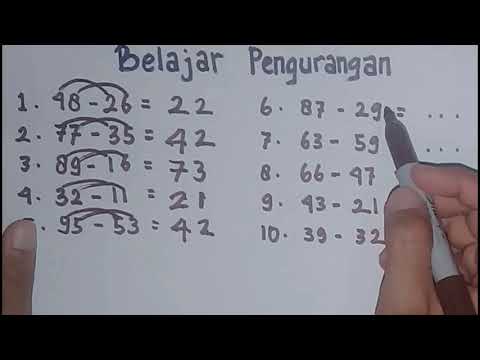 Belajar Pengurangan
1. 48 - 26 = 22
2. 77 - 35 = 42
3. 89 - 16 = 73
4. 32 - 11 = 21
. 95 - 53 = 42
6. 87 - 29 = ...
7. 63 - 59 ...
8. 66 - 47
9. 43 - 21
10. 39 - 32